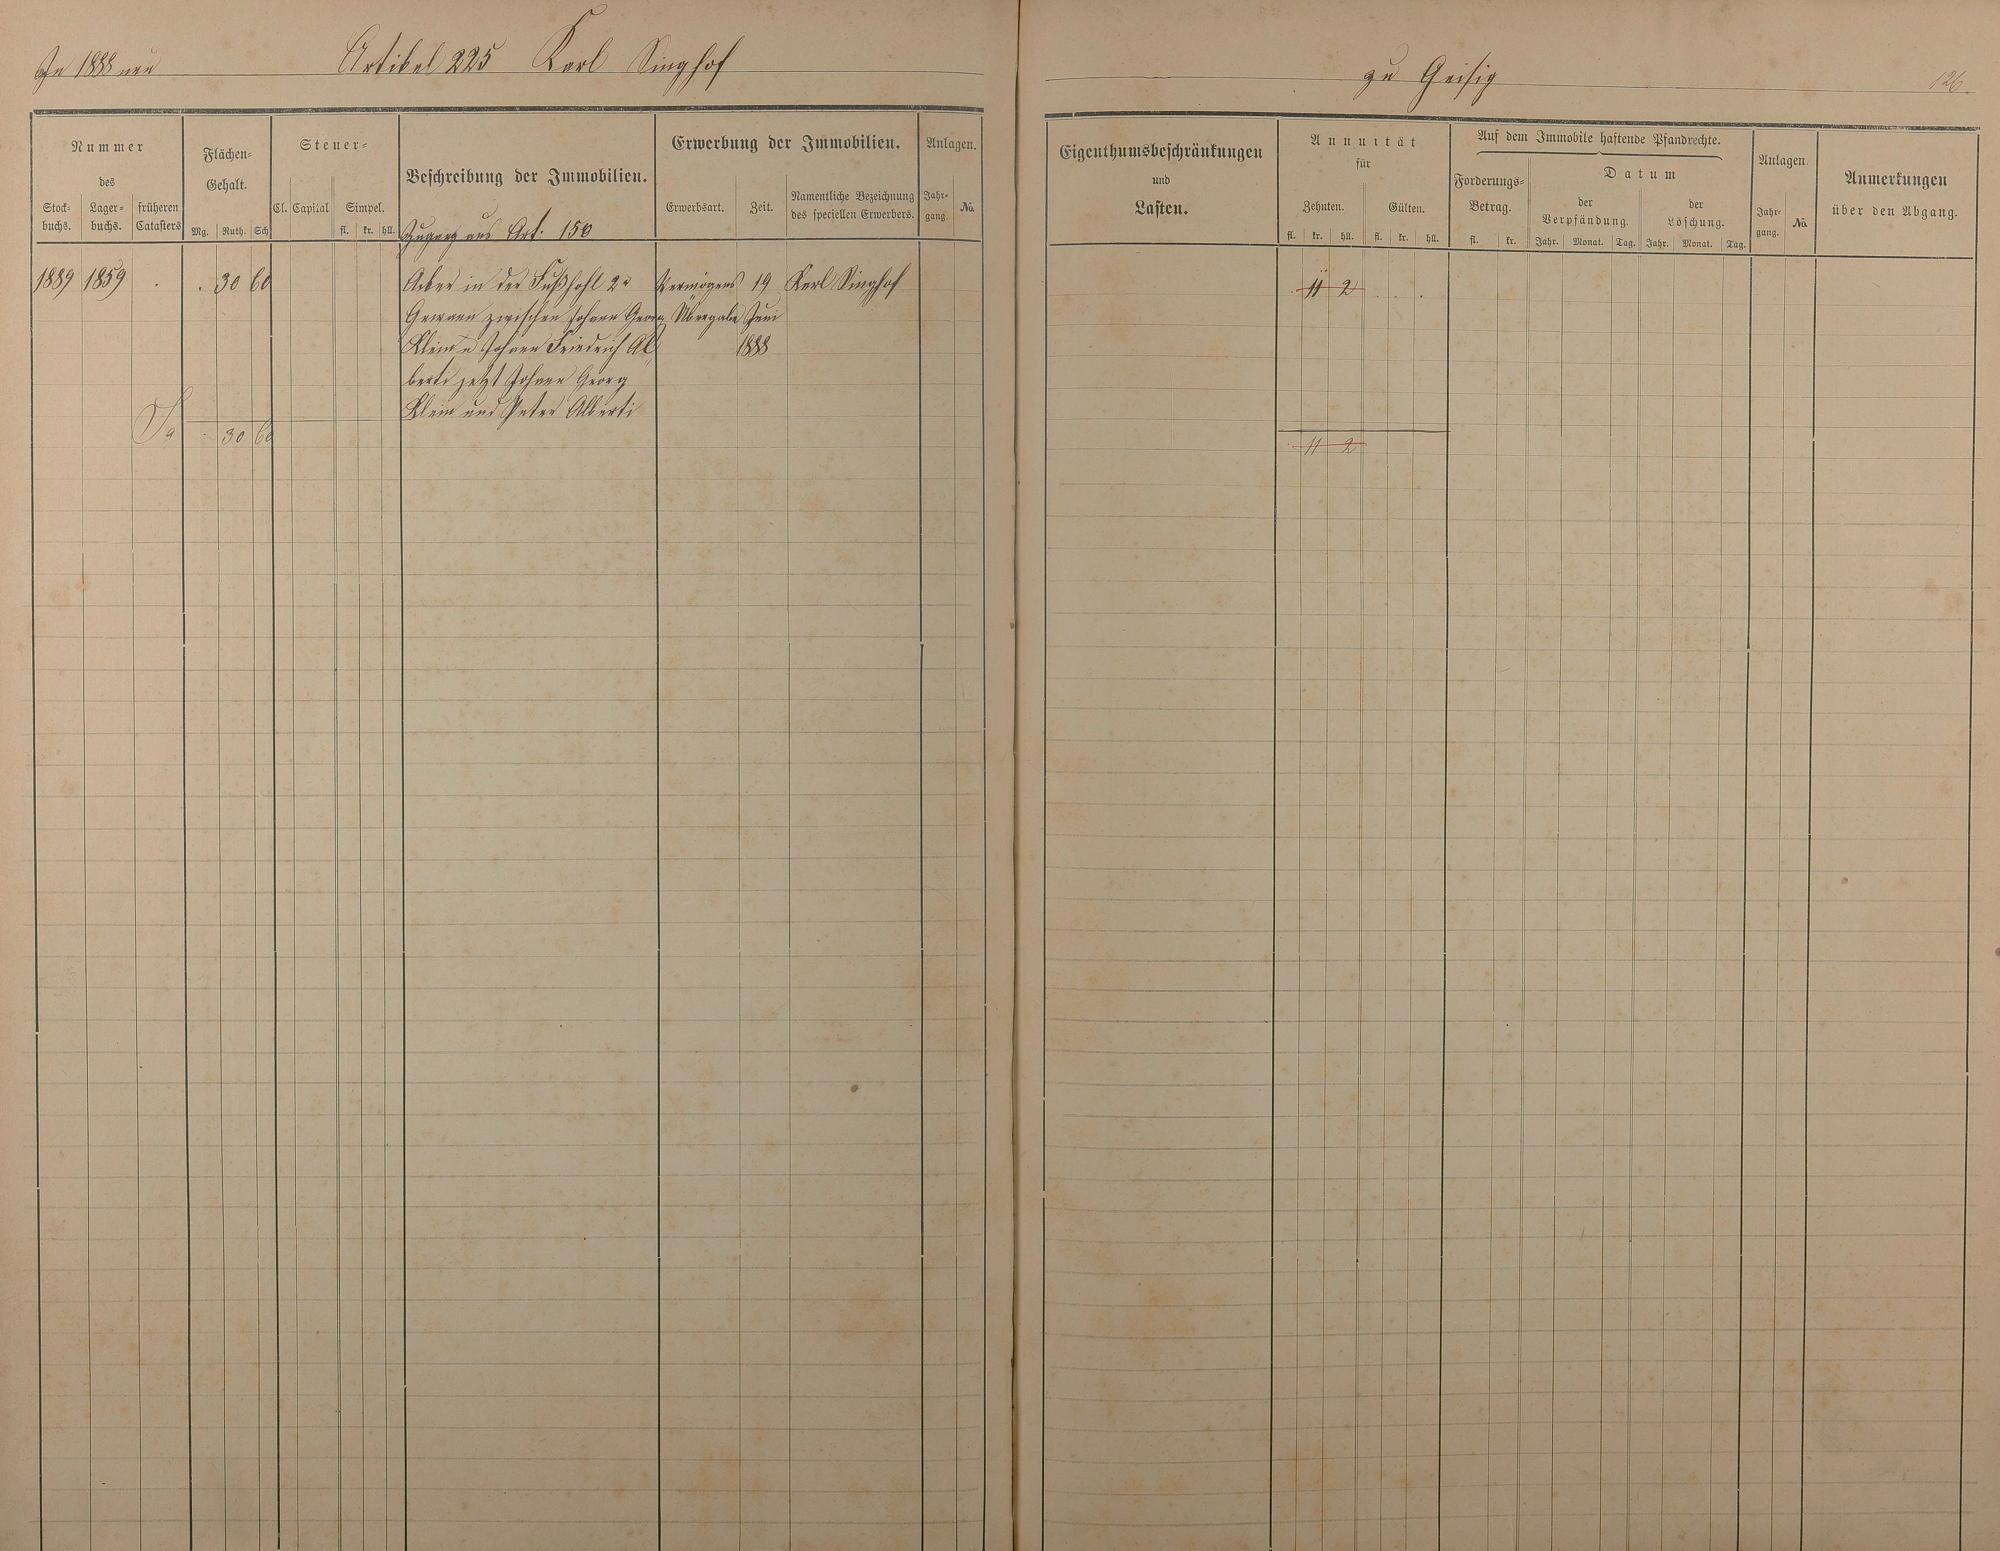 In 1888 neu Artikel 225 Karl Singhof
zu Geisig 126.
Nummer
des
Stock-
buchs.
Lager-
buchs.
früheren
Catasters
Flächen-
Gehalt.
Mg. Ruth. Sch
Steuer-
Cl. Capital Simpel.
fl. kr. hll.
Beschreibung der Immobilien.
Zugang aus Art: 156
Erwerbung der Immobilien.
Erwerbsart. Zeit.
Namentliche Bezeichnung
des speciellen Erwerbers.
Anlagen.
Jahr-
gang. No.
Eigenthumsbeschränkungen
und
Lasten.
Annuität
für
Zehnten. Gülten.
fl. kr. hll. fl. kr. hll.
Auf dem Immobile haftende Pfandrechte.
Forderungs-
Betrag.
fl. kr.
Datum
der
Verpfändung.
Jahr. Monat. Tag.
der
Löschung.
Jahr. Monat. Tag.
Anlagen.
Jahr-
gang. No
Anmerkungen
über den Abgang.
1889 1859 . . 30 60 Acker in der Fußhohl 2r Vermögens 19 Karl Singhof 11 2 . . .
Gewann zwischen Johann Georg Übergabe Juni
Klein u Johann Friedrich Al- 1888
berti jetzt Johann Georg
Klein und Peter Alberti
Sa . 30 60 11 2